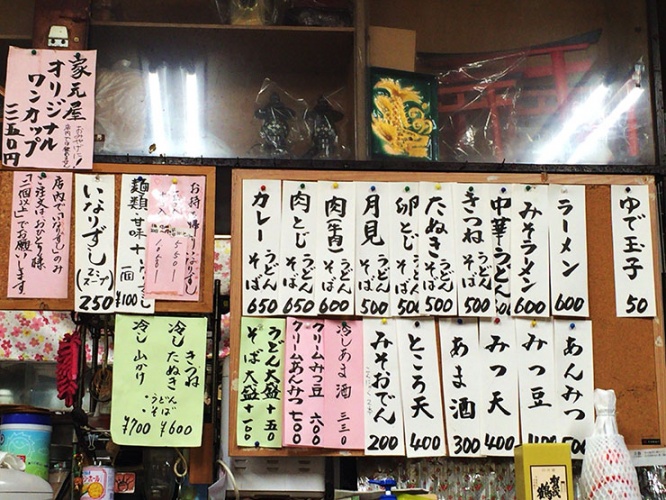 家元屋
オリジナル
ワンカップ
一三五〇円
店内でいなりずしのみ
ご注文はおひとり様
「二個以上」でお願いします
いなりずし
250
麺類+甘味
¥100
お持ち帰りいなりずし
きつね
冷し たぬき
冷し 山かけ
うどん
そば
¥700
¥600
カレー うどん そば
650
肉とじ うどん そば
650
肉 うどん そば
600
月見 うどん そば
500
卵とじ うどん そば
500
たぬき うどん そば
500
きつね うどん そば
500
中華 うどん
500
みそラーメン
600
ラーメン
600
ゆで玉子
50
うどん大盛 +50
そば大盛 +100
クリームみつ豆 六〇〇
クリームあんみつ 七〇〇
冷しあま酒 三三〇
みそおでん
200
ところ天
400
あま酒
300
みつ天
400
みつ豆
あんみつ